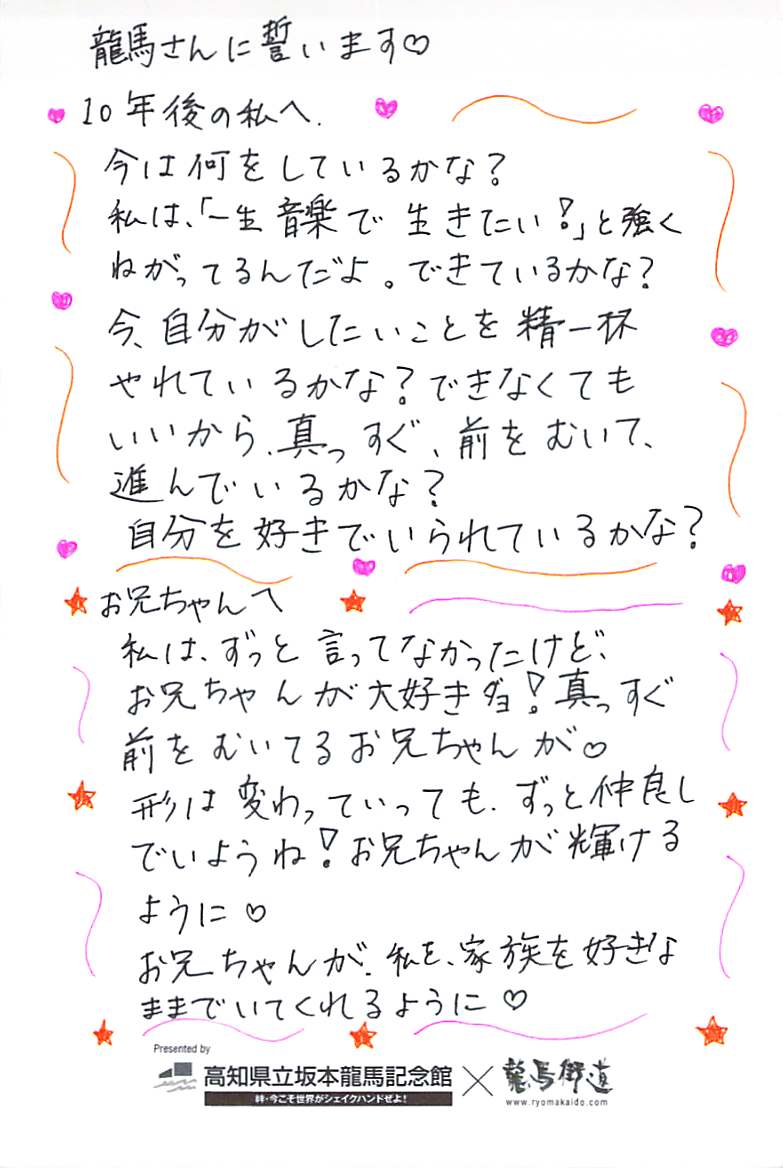 龍馬さんに誓います♡
10年後の私へ.
今は何をしているかな?
私は、「一生音楽で生きたい!」と強く
ねがってるんだよ。できているかな?
今、自分がしたいことを精一杯
やれているかな?できなくても
いいから、真っすぐ、前をむいて、
進んでいるかな?
自分を好きでいられているかな?
お兄ちゃんへ
私は、ずっと言ってなかったけど、
お兄ちゃんが大好きダヨ!真っすぐ
前をむいてるお兄ちゃんが♡
形は変わっていっても、ずっと仲良し
でいようね!お兄ちゃんが輝ける
ように♡
お兄ちゃんが、私を、家族を好きな
ままでいてくれるように♡
Presented by
高知県立坂本龍馬記念館×龍馬街道
絆・今こそ世界がシェイクハンドぜよ!
www.ryomakaido.com